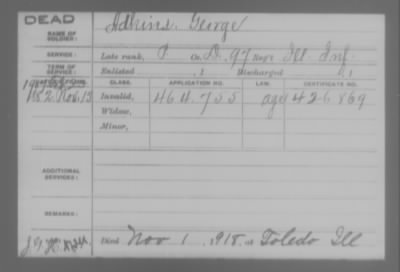 DEAD
NAME OF SOLDIER: Adkins George
SERVICE: Late rank, P Co. D, 97 Reg't Ill. Inf.
TERM OF SERVICE: Enlisted , 1 Discharged , 1
CLASS. APPLICATION NO. LAW. CERTIFICATE NO.
Nov. 13 Invalid, 464.705 age 426.869
Widow,
Minor,
ADDITIONAL SERVICES:
REMARKS:
Died Nov 1, 1918, at Toledo Ill